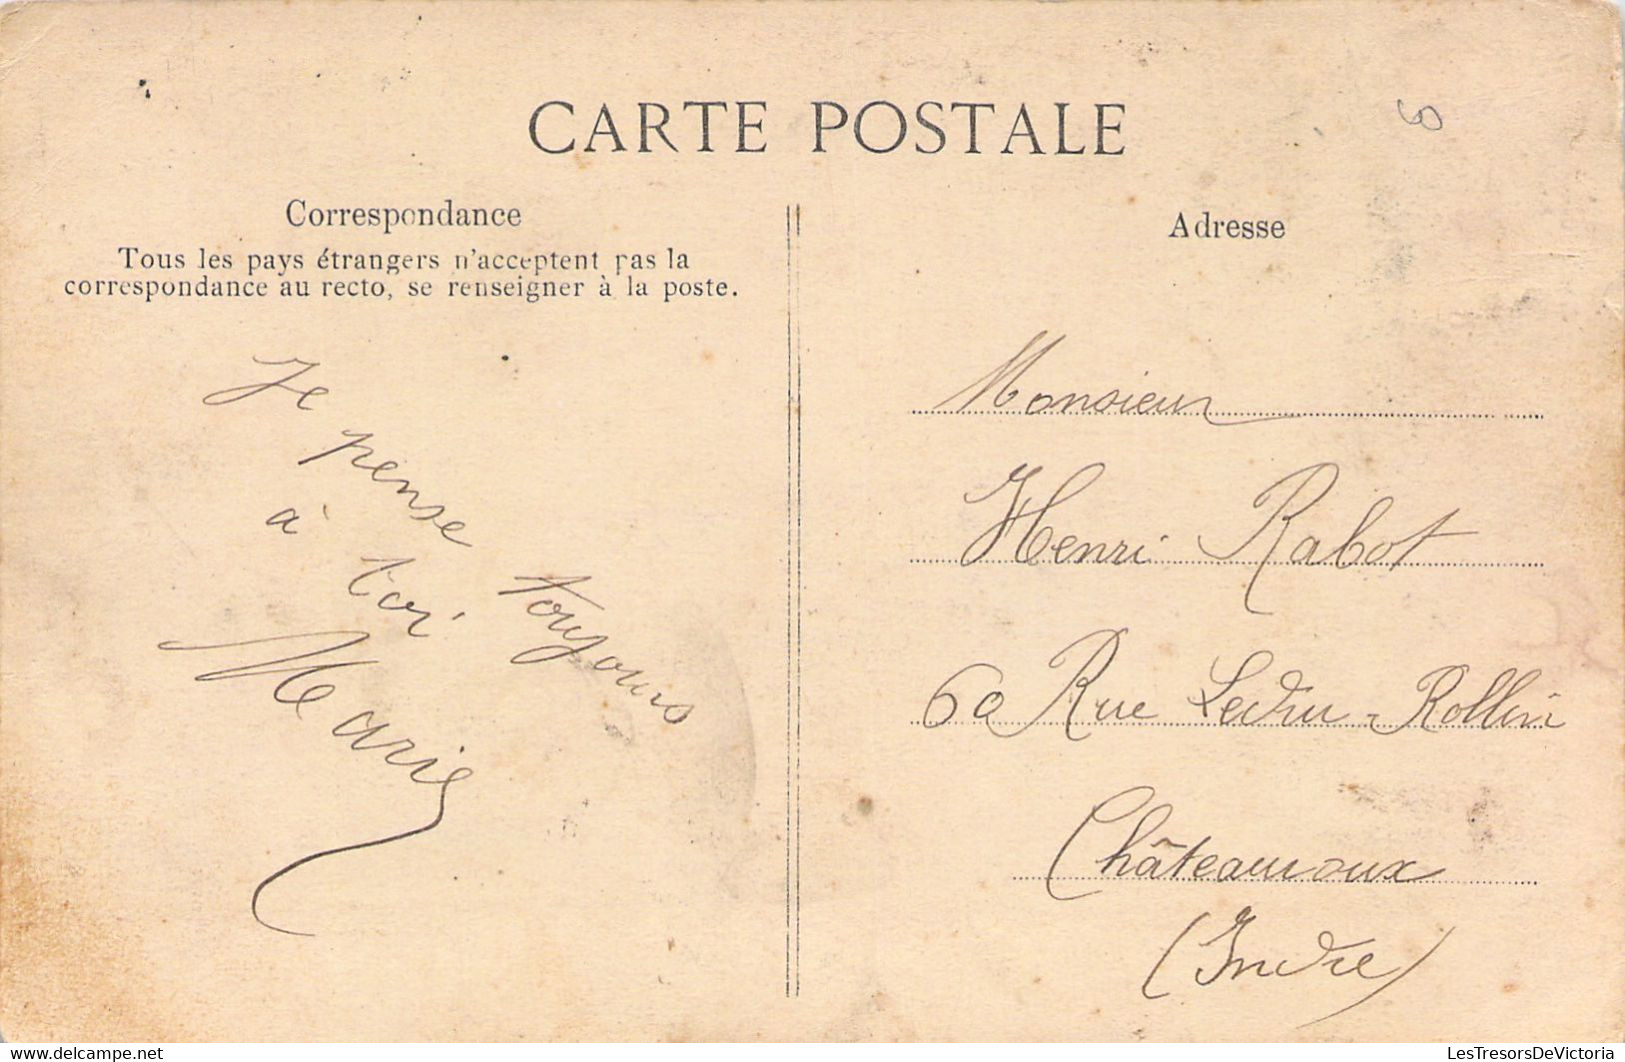 CARTE POSTALE
Correspondance
Tous les pays étrangers n'acceptent pas la
correspondance au recto, se renseigner à la poste.
Je
pense
à toi toujours
Marie
Adresse
Monsieur
Henri Rabot
60 Rue Ledru-Rollin
Châteauroux
(Indre)
LesTresorsDeVictoria
delcampe.net